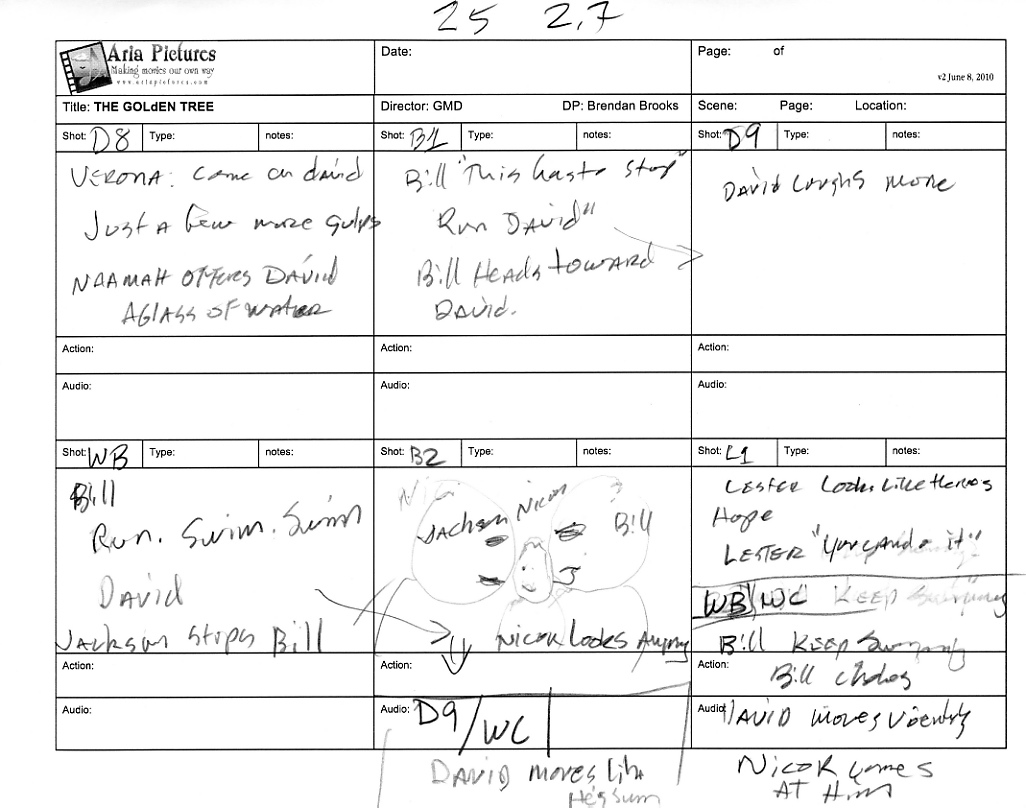 25 2.7
Aria Pictures
Making movies our own way
www.ariapictures.com
Date:
Page: of
v2 June 8, 2010
Title: THE GOLdEN TREE
Director: GMD
DP: Brendan Brooks
Scene: Page: Location:
Shot: D8 Type: notes:
VERONA: Come on david
Just A few more gulps
NAAMAH OFFERS DAVID
A GLASS OF WATER
Action:
Audio:
Shot: B1 Type: notes:
Bill "This has to stop"
Run DAVID"
Bill HEADS TOWARD
DAVID.
Action:
Audio:
Shot: D9 Type: notes:
DAVID more
Action:
Audio:
Shot: WB Type: notes:
Bill
Run. Swim. Swim
DAVID
JACKSON stops Bill
Action:
Audio:
Shot: B2 Type: notes:
JACKSON
Bill
Looks
Action:
Audio: D9/WC
DAVID moves like
Shot: L1 Type: notes:
LESTER Looks Like theres
Hope
LESTER "You can do it"
WB WC KEEP
Bill KEEP
Action:
Bill
Audio: DAVID moves
AT Him